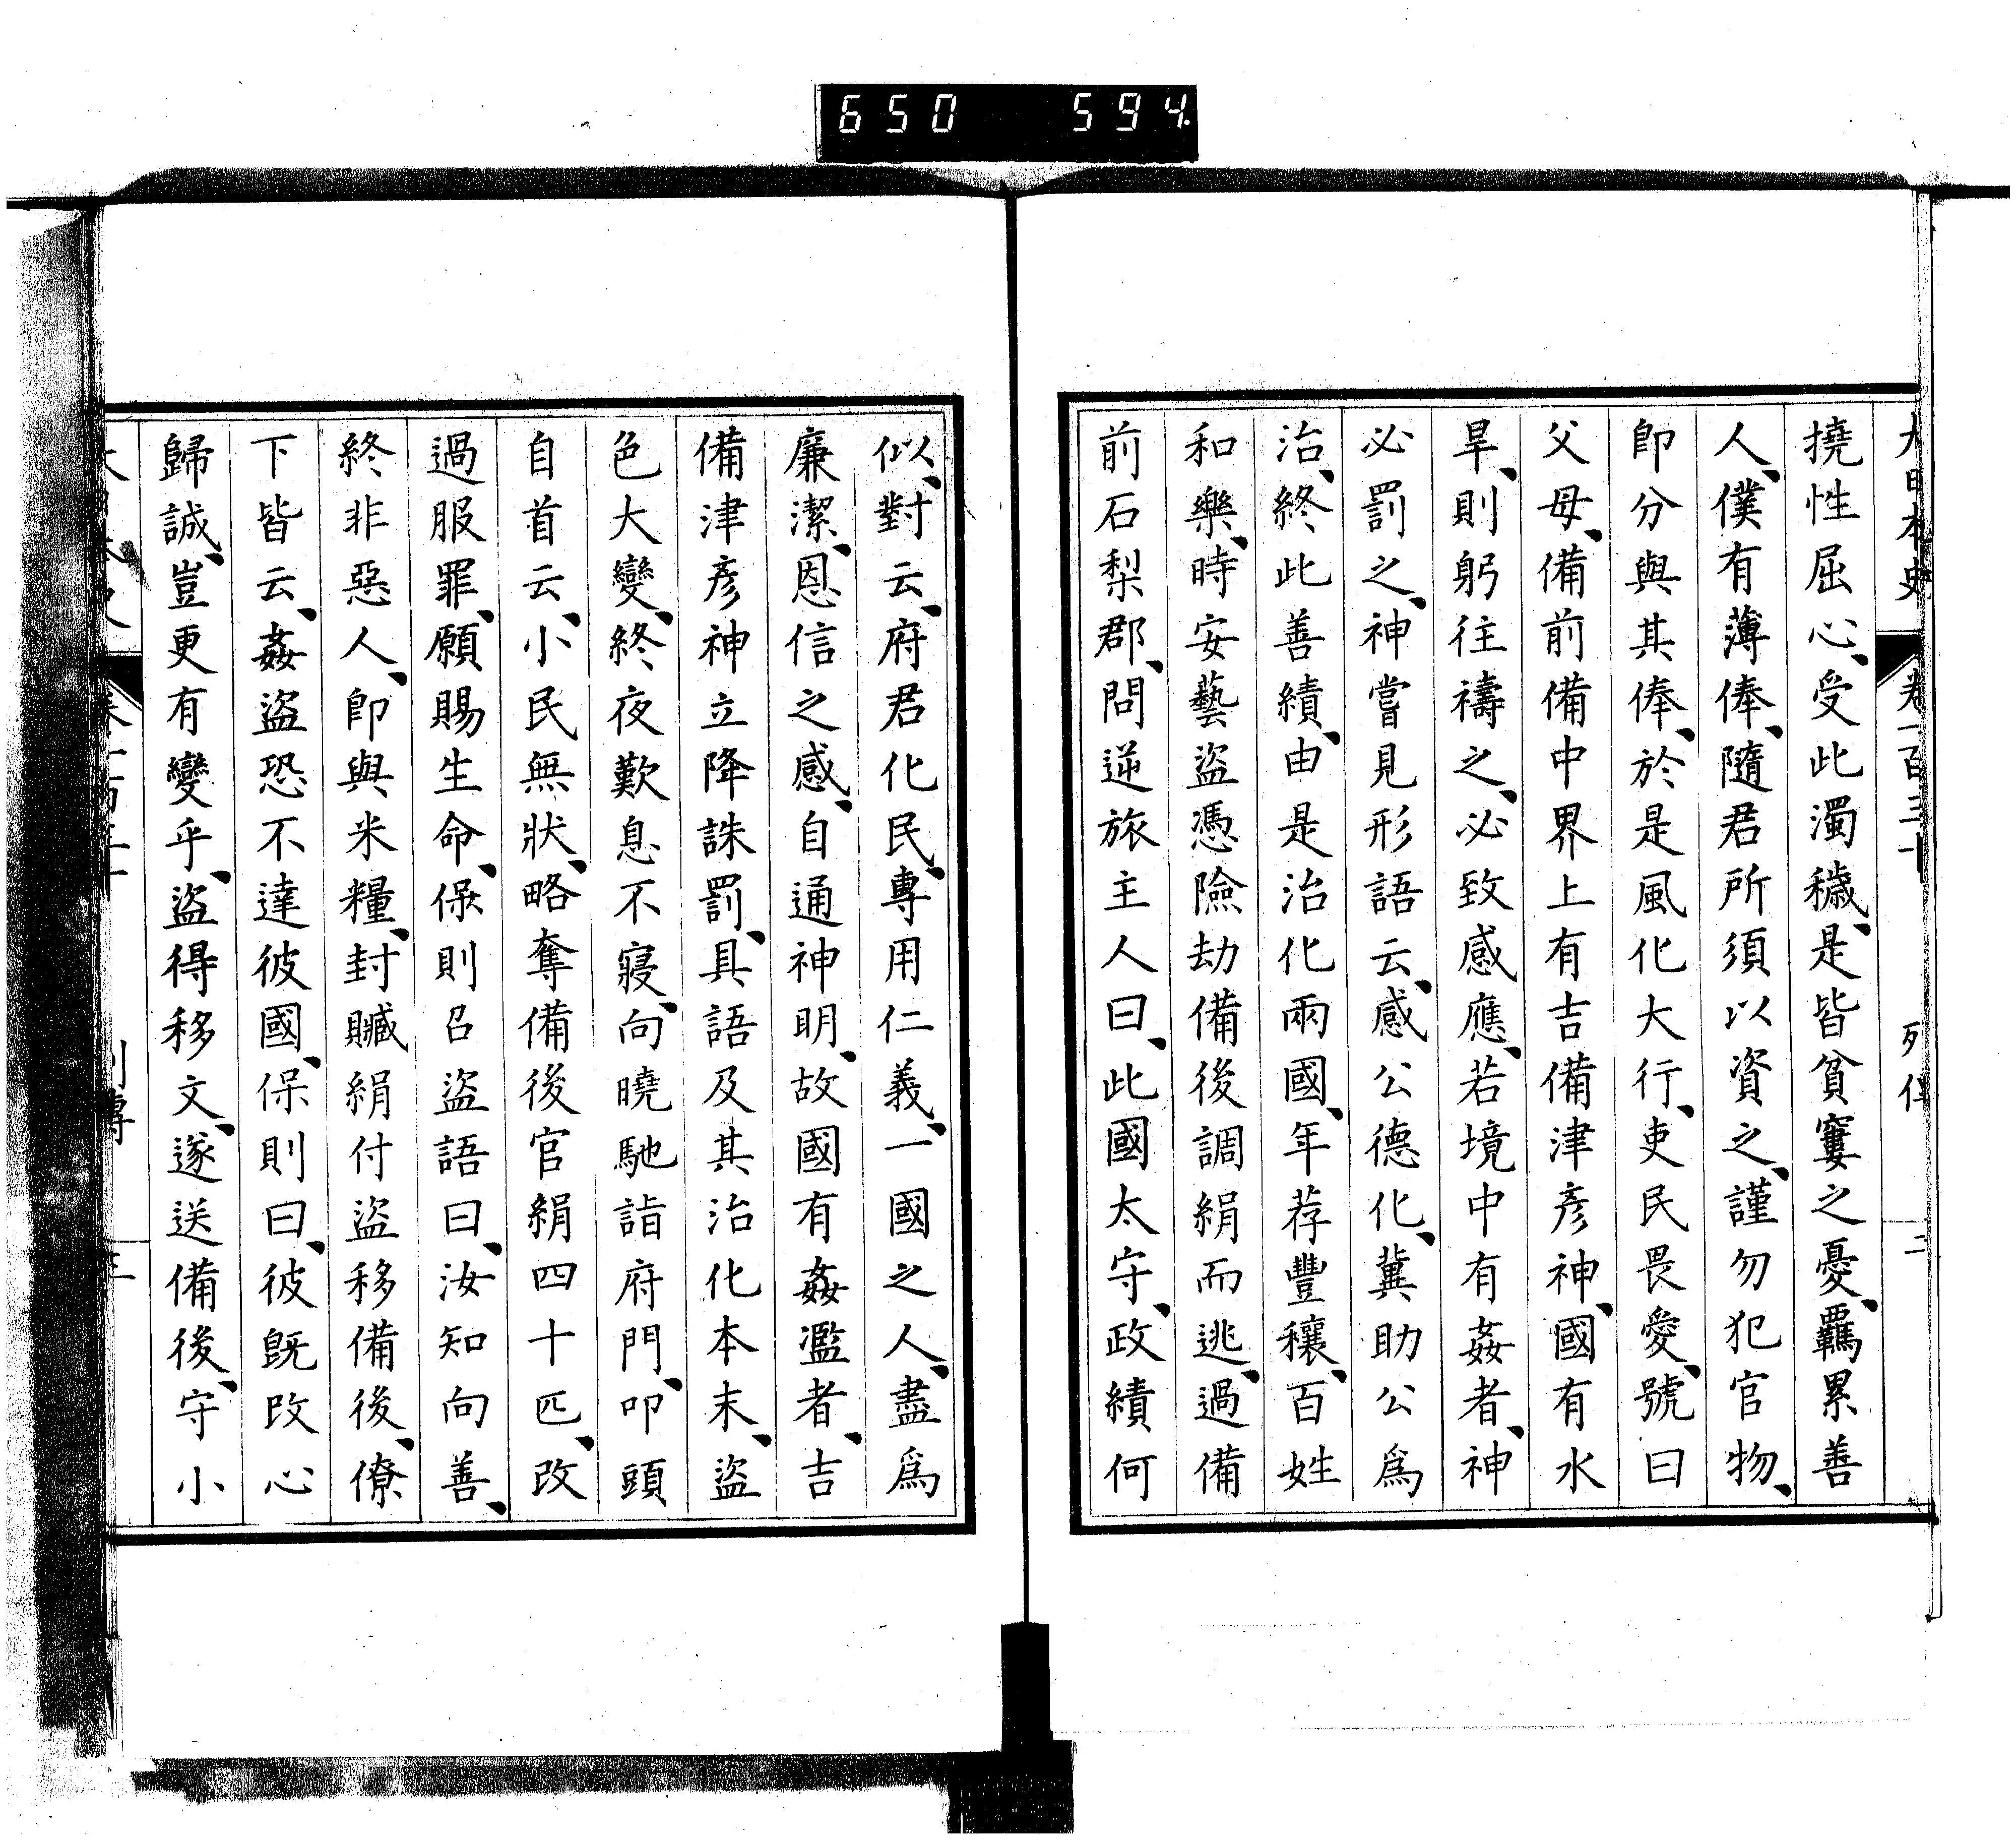 650 594
大日本史 卷一百三十 列傳 二
撓性屈心、受此濁穢、是皆貧窶之憂、羈累善
人、僕有薄俸、隨君所須以資之、謹勿犯官物、
卽分與其俸、於是風化大行、吏民畏愛、號曰
父母、備前備中界上有吉備津彥神、國有水
旱、則躬往禱之、必致感應、若境中有姦者、神
必罰之、神嘗見形語云、感公德化、冀助公爲
治、終此善績、由是治化兩國、年荐豐穰、百姓
和樂、時安藝盜憑險劫備後調絹而逃、過備
前石梨郡、問逆旅主人曰、此國太守、政績何
似、對云、府君化民、專用仁義、一國之人、盡爲
廉潔、恩信之感、自通神明、故國有姦濫者、吉
備津彥神立降誅罰、具語及其治化本末、盜
色大變、終夜歎息不寢、向曉馳詣府門、叩頭
自首云、小民無狀、略奪備後官絹四十匹、改
過服罪、願賜生命、保則召盜語曰、汝知向善、
終非惡人、卽與米糧、封贓絹付盜移備後、僚
下皆云、姦盜恐不達彼國、保則曰、彼旣改心
歸誠、豈更有變乎、盜得移文、遂送備後、守小